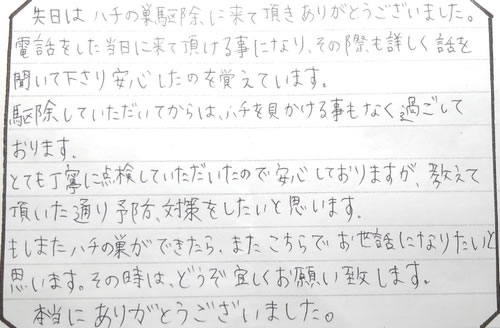 先日は ハチの巣駆除に来て頂きありがとうございました。
電話をした当日に来て頂ける事になり、その際も詳しく話を
聞いて下さり安心したのを覚えています。
駆除していただいてからは、ハチを見かける事もなく過ごして
おります。
とても丁寧に点検していただいたので安心しておりますが、教えて
頂いた通り予防、対策をしたいと思います。
もしまたハチの巣ができたら、またこちらでお世話になりたいと
思います。その時は、どうぞ宜しくお願い致します。
本当にありがとうございました。